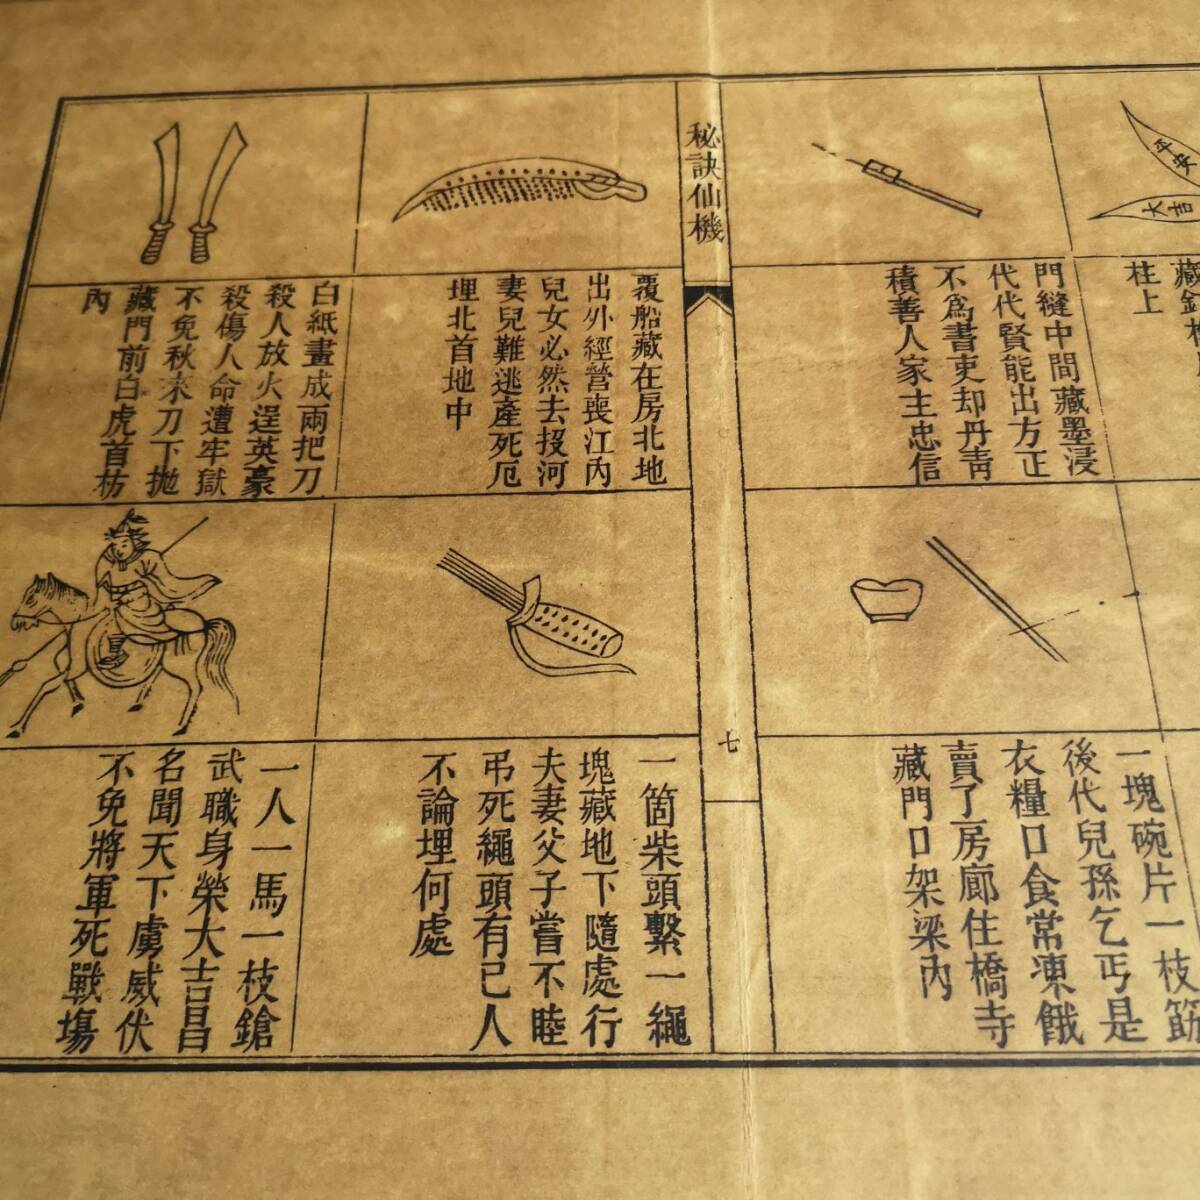 平安
大吉
柱上
門縫中間藏墨浸
代代賢能出方正
不爲書吏却丹靑
積善人家主忠信
一塊碗片一枝筯
後代兒孫乞丐是
衣糧口食常凍餓
賣了房廊住橋寺
藏門口架梁內
秘訣仙機
七
覆船藏在房北地
出外經營喪江內
兒女必然去投河
妻兒難逃產死厄
埋北首地中
一箇柴頭繫一繩
塊藏地下隨處行
夫妻父子嘗不睦
弔死繩頭有已人
不論埋何處
白紙畫成兩把刀
殺人放火逞英豪
殺傷人命遭牢獄
不免秋來刀下拋
藏門前白虎首枋
內
一人一馬一枝鎗
武職身榮大吉昌
名聞天下虜威伏
不免將軍死戰塲